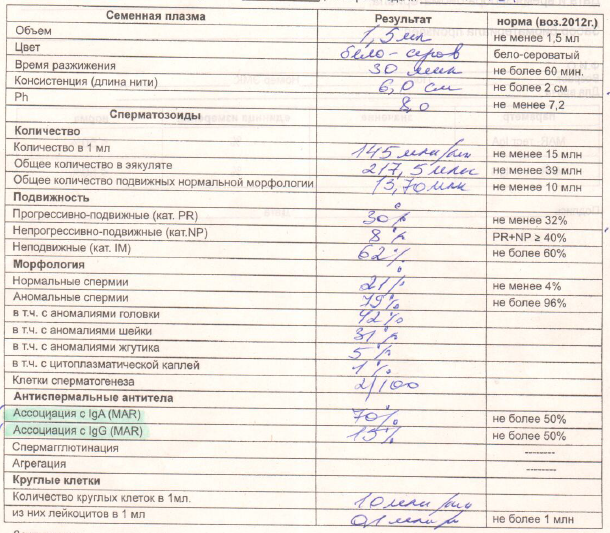 Семенная плазма Результат норма (воз.2012г.)
Объем 1,5 мл не менее 1,5 мл
Цвет бело-серов бело-сероватый
Время разжижения 30 мин не более 60 мин.
Консистенция (длина нити) 6,0 см не более 2 см
Ph 8,0 не менее 7,2
Сперматозоиды
Количество
Количество в 1 мл 145 млн/мл не менее 15 млн
Общее количество в эякуляте 217,5 млн не менее 39 млн
Общее количество подвижных нормальной морфологии 13,70 млн не менее 10 млн
Подвижность
Прогрессивно-подвижные (кат. PR) 30% не менее 32%
Непрогрессивно-подвижные (кат.NP) 8% PR+NP ≥ 40%
Неподвижные (кат. IM) 62% не более 60%
Морфология
Нормальные спермии 21% не менее 4%
Аномальные спермии 79% не более 96%
в т.ч. с аномалиями головки 42%
в т.ч. с аномалиями шейки 31%
в т.ч. с аномалиями жгутика 5%
в т.ч. с цитоплазматической каплей 1%
Клетки сперматогенеза 2/100
Антиспермальные антитела
Ассоциация с IgA (MAR) 70% не более 50%
Ассоциация с IgG (MAR) 15% не более 50%
Спермагглютинация --------
Агрегация --------
Круглые клетки
Количество круглых клеток в 1мл. 10 млн/мл
из них лейкоцитов в 1 мл 0,1 млн не более 1 млн